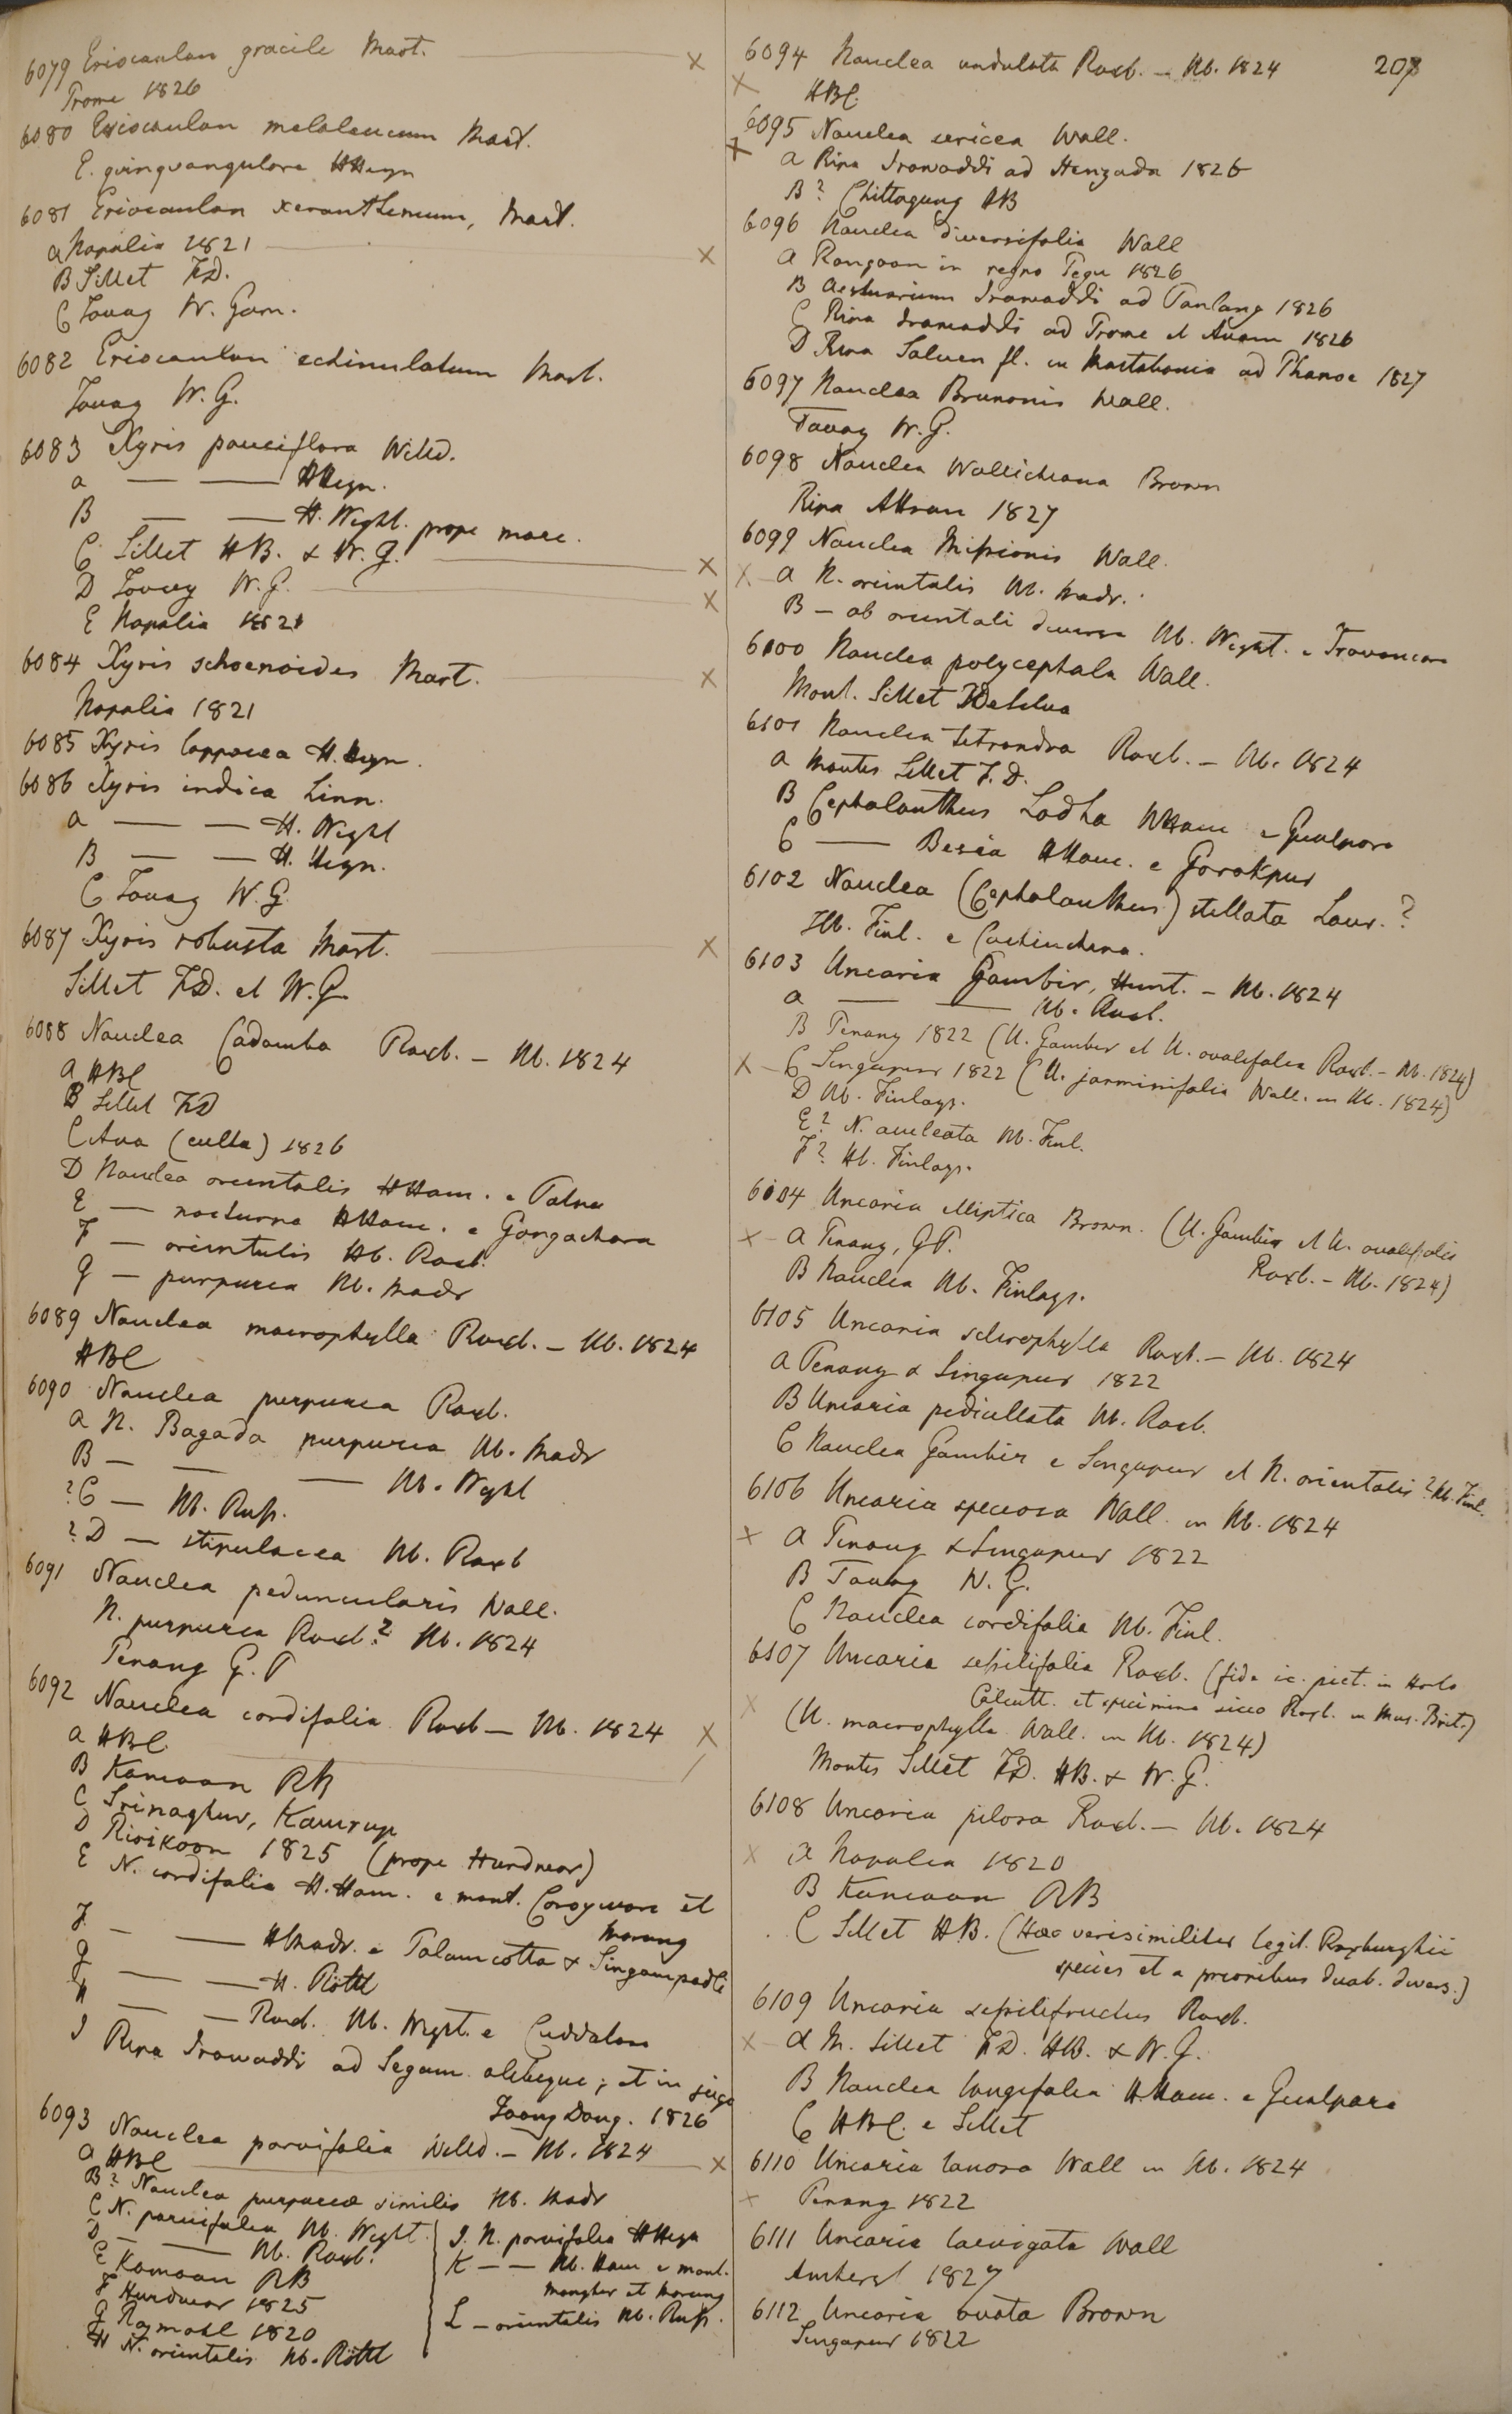 6079 Eriocaulon gracile Mart. ——— X
Prome 1826
6080 Eriocaulon melaleucum Mart.
E. quinquangulare HHeyn
6081 Eriocaulon xeranthemum, Mart.
a Napalia 1821 ——— X
B Sillet FD.
C Tavoy W. Gom.
6082 Eriocaulon echinulatum Mart.
Tavoy W.G.
6083 Xyris pauciflora Willd.
a — — HHeyn.
B — — H. Wight. prope mare.
C Sillet HB. & W.G. ——— X
D Tavoy W.G. ——— X
E Napalia 1821
6084 Xyris schoenoides Mart. ——— X
Napalia 1821
6085 Xyris lappacea H. Heyn.
6086 Xyris indica Linn.
a — — H. Wight
B — — H. Heyn.
C Tavoy W.G.
6087 Xyris robusta Mart. ——— X
Sillet FD. et W.G.
6088 Nauclea Cadamba Roxb. — Hb. 1824
a HBC
B Sillet FD
C Ava (culta) 1826
D Nauclea orientalis HHam. e Patna
E — nocturna HHam. e Gongachora
F — orientalis Hb. Roxb.
G — purpurea Hb. Madr
6089 Nauclea macrophylla Roxb. — Hb. 1824
HBC
6090 Nauclea purpurea Roxb.
a N. Bagada purpurea Hb. Madr
B — — — Hb. Wight
?C — Hb. Russ.
?D — stipulacea Hb. Roxb
6091 Nauclea peduncularis Wall.
N. purpurea Roxb.? Hb. 1824
Penang G.P
6092 Nauclea cordifolia Roxb — Hb. 1824 X
a HBC
B Kamaon RB
C Srinaghur, Kamrup
D Rivikoon 1825 (prope Hurdwar)
E N. cordifolia H. Ham. e mont. Corogwore et
Morung
F — — HMadr. e Palamcotta & Singampadti
G — — H. Röttl
H — — Roxb. Hb. Wight. e Cuddalore
I Ripa Irawaddi ad Segain alibique; et in juga
Toong Dong. 1826
6093 Nauclea parvifolia Willd. — Hb. 1824 X
a HBC
B? Nauclea purpureæ similis Hb. Madr
C N. parvifolia Hb. Wight.
D — — Hb. Roxb.
E Kamaon RB
F Hurdwar 1825
G Ramatl 1820
H N. orientalis Hb. Röttl
I. N. parvifolia HHeyn
K — — Hb. Ham e mont.
Mongher et Morung
L — orientalis Hb. Russ.
6094 Nauclea undulata Roxb. — Hb. 1824
208
X HBC.
6095 Nauclea sericea Wall.
X a Ripa Irawaddi ad Henzada 1826
B? Chittagung HB
6096 Nauclea diversifolia Wall
a Rangoon in regno Pegu 1826
B Aestuarium Irawaddi ad Panlang 1826
C Ripa Irawaddi ad Prome et Avam 1826
D Ripa Saluen fl. in Martabania ad Phanoe 1827
6097 Nauclea Brunonis Wall.
Tavoy W.G.
6098 Nauclea Wallichiana Brown
Ripa Attran 1827
6099 Nauclea Missionis Wall.
X a N. orientalis Hb. Madr.
B — ab orientali diversa Hb. Wight. e Travancore
6100 Nauclea polycephala Wall.
Mont. Sillet FDeSilva
6101 Nauclea tetrandra Roxb. — Hb. 1824
a Montes Sillet F.D.
B Cephalanthus Lodha HHam e Gualpara
C — Besea HHam. e Gorakpur
6102 Nauclea (Cephalanthus) stellata Lour.?
Hb. Finl. e Cochinchina.
6103 Uncaria Gambir, Hunt. — Hb. 1824
a — — Hb. Roxb.
B Penang 1822 (U. Gambir et U. ovalifolia Roxb. — Hb. 1824)
X C Singapur 1822 (U. jasminifolia Wall. in Hb. 1824)
D Hb. Finlays.
E? N. aculeata Hb. Finl.
F? Hb. Finlays.
6104 Uncaria elliptica Brown. (U. Gambir et U. ovalifolia
Roxb. — Hb. 1824)
X a Penang, GP.
B Nauclea Hb. Finlays.
6105 Uncaria sclerophylla Roxb. — Hb. 1824
a Penang & Singapur 1822
B Uncaria pedicellata Hb. Roxb.
C Nauclea Gambir e Singapur et N. orientalis? Hb. Finl.
6106 Uncaria speciosa Wall. in Hb. 1824
X a Penang & Singapur 1822
B Tavoy W.G.
C Nauclea cordifolia Hb. Finl.
6107 Uncaria sessilifolia Roxb. (fide ic. pict. in Horto
Calcutt. et specimine sicco Roxb. in Mus. Brit.)
X (U. macrophylla Wall. in Hb. 1824)
Montes Sillet FD. HB. & W.G.
6108 Uncaria pilosa Roxb. — Hb. 1824
X a Napalia 1820
B Kamaon RB
C Sillet HB. (Hæc verisimiliter legit. Roxburghii
species et a prioribus duab. divers.)
6109 Uncaria sessilifructus Roxb.
X a M. Sillet FD. HB. & W.G.
B Nauclea longifolia H.Ham. e Gualpara
C HBC. e Sillet
6110 Uncaria lanosa Wall in Hb. 1824
X Penang 1822
6111 Uncaria laevigata Wall
Amherst 1827
6112 Uncaria ovata Brown
Singapur 1822